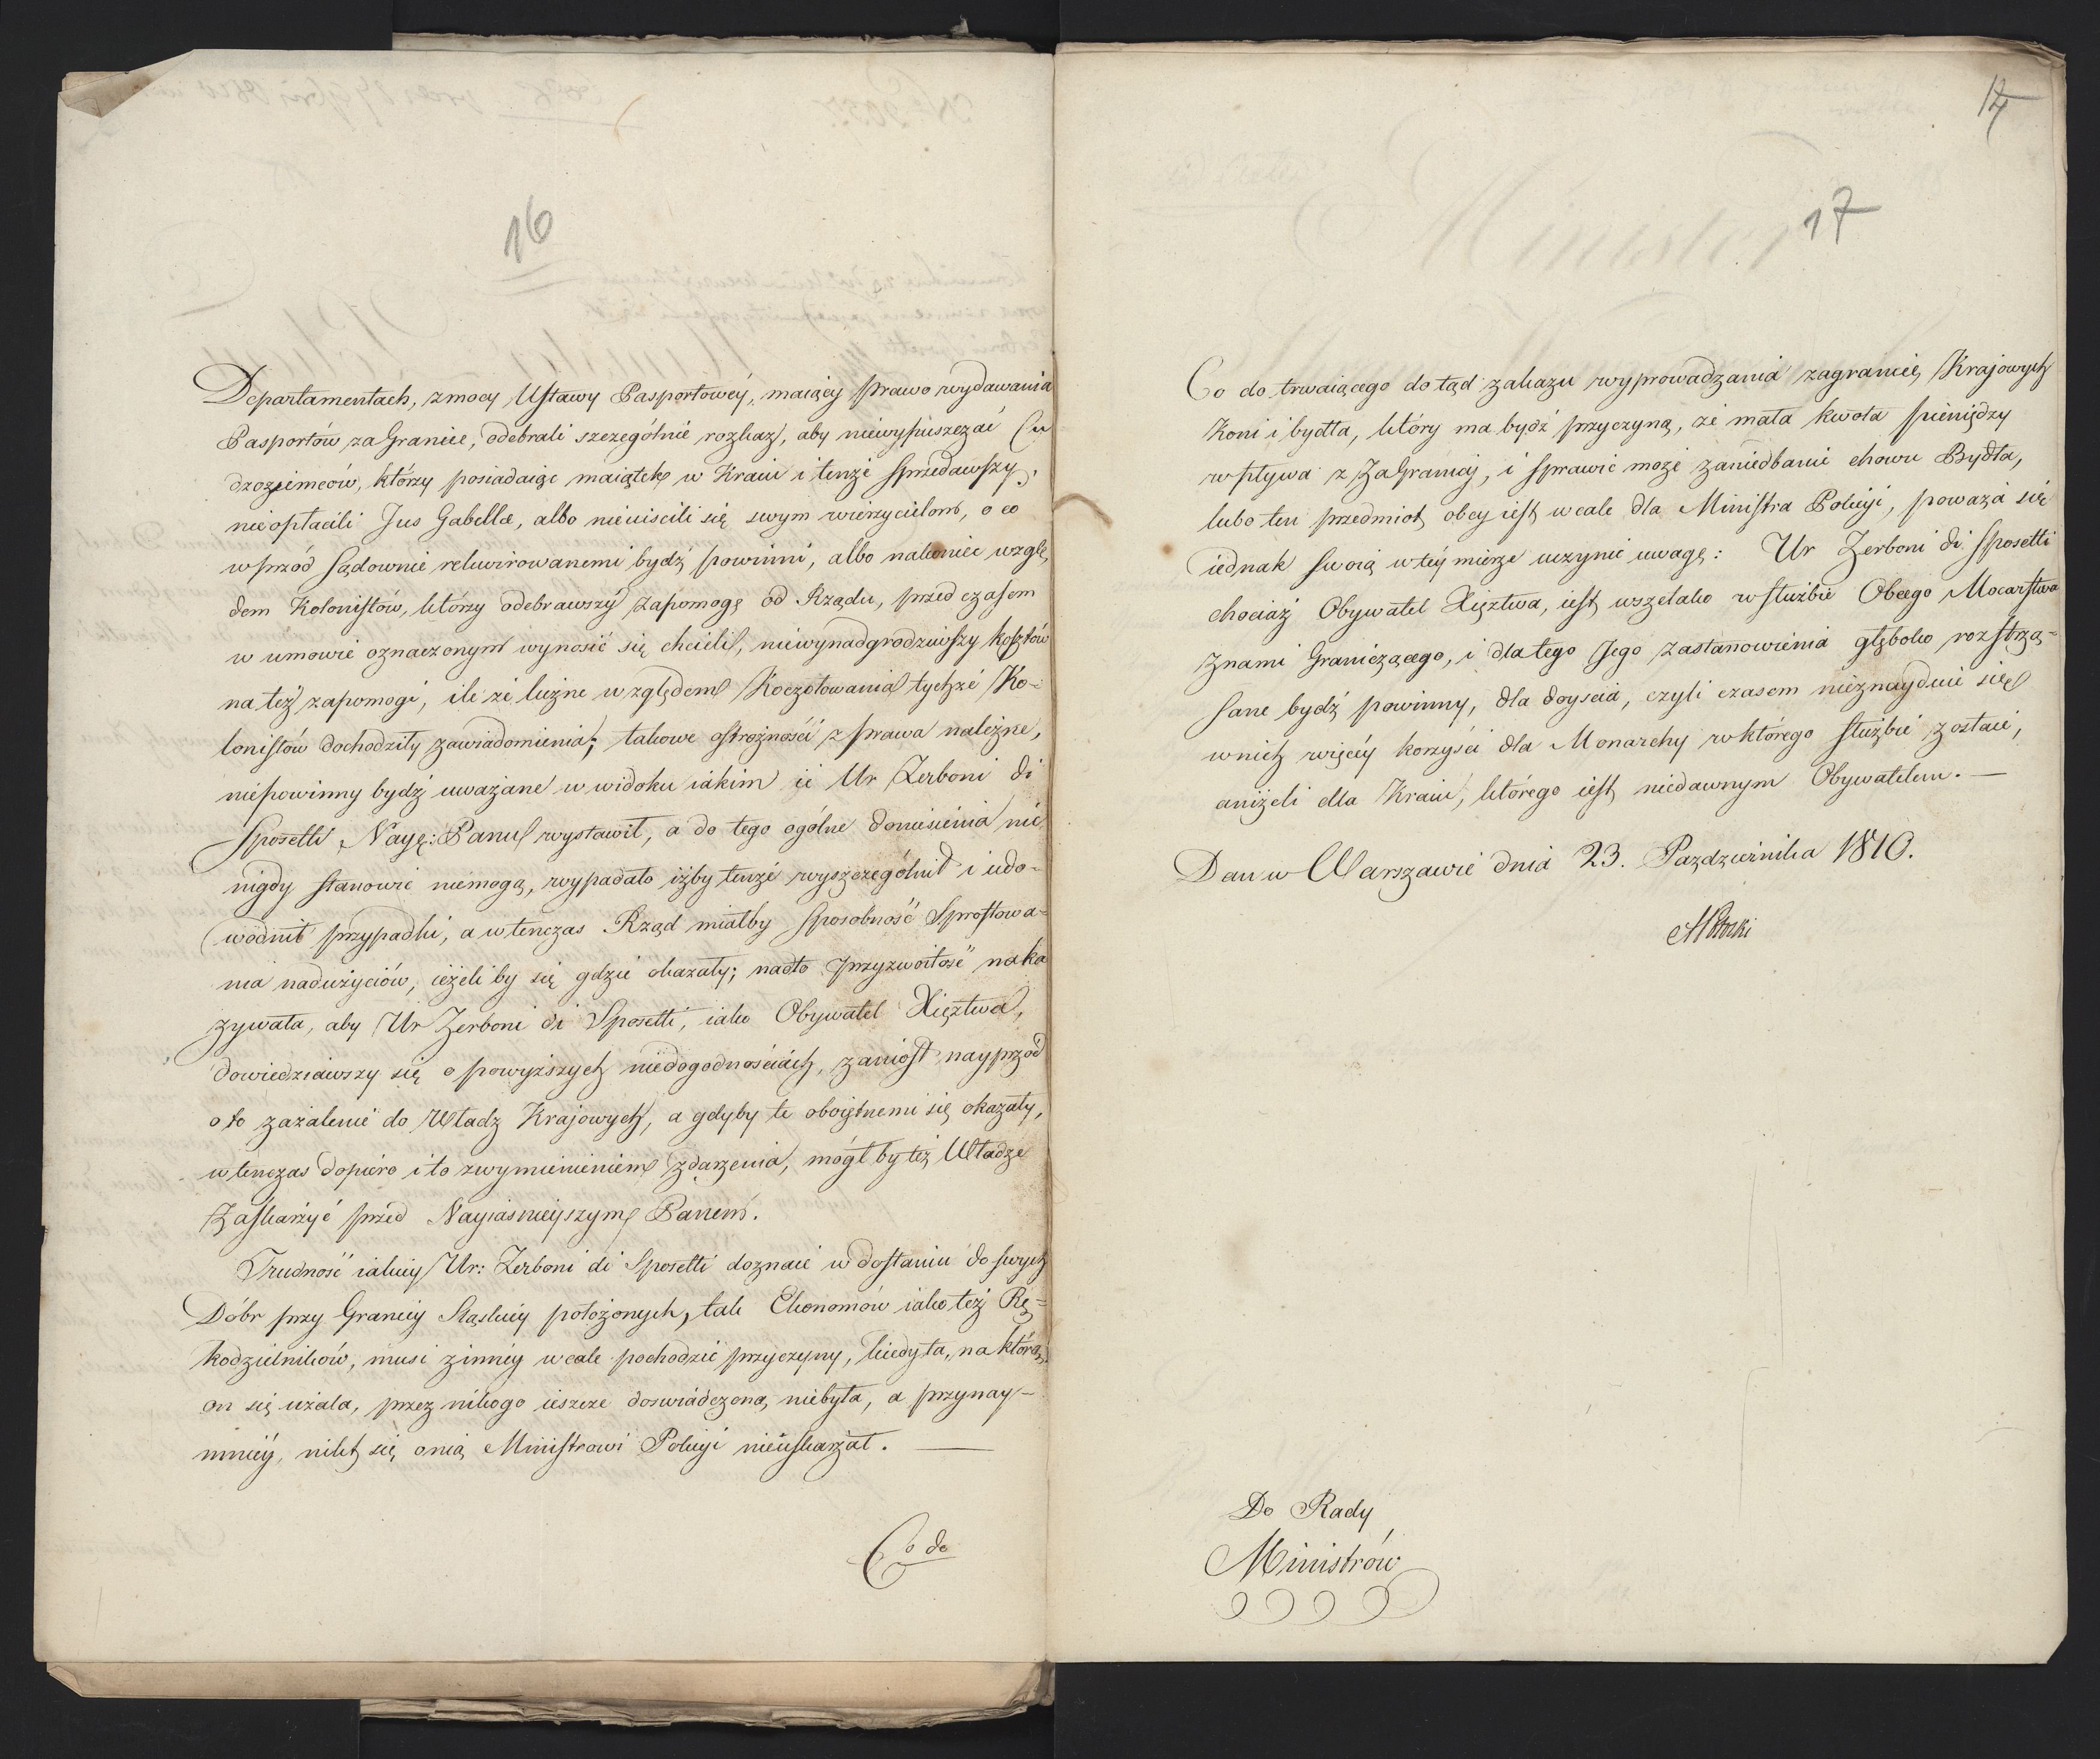 16
Departamentach, zmocy Ustawy Pasportowéy, maiący prawo wydawania
Pasportów za Granice, odebrali szczególnie rozkaz, aby niewypuszczać Cu
dzoziemców, którzy posiadaiąc maiątek w Kraiu i tenże sprzedawszy,
nieopłacili Jus Gabellæ, albo nieuiscili się swym wierzycielom, o co
wprzód Sądownie rekwirowanemi bydź powinni, albo nakoniec wzglę
dem Kolonistów, którzy odebrawszy zapomogę od Rządu, przed czasem
w umowie oznaczonym wynosić się chcieli, niewynadgrodziwszy kosztów
na też zapomogi, ile że luźne względem Koczotowania tychże Ko-
lonistów dochodziły zawiadomienia; takowe ostrożności z prawa należne,
niepowinny bydź uważane w widoku iakim ie Ur Zerboni di
Sposetti Nayę: Panu wystawił, a do tego ogólne doniesienia nic
nigdy stanowić niemogą, wypadało iżby tenże wyszczególnił i udo-
wodnił przypadki, a wtenczas Rząd miałby sposobność Sprostowa-
nia nadużyciów, ieżeliby się gdzie okazały; nadto przyzwoitość naka
zywała, aby Ur Zerboni di Sposetti, iako Obywatel Xięztwa,
dowiedziawszy się o powyższych niedogodnościach, zaniosł nayprzód
o to zażalenie do Władz Krajowych, a gdyby te oboiętnemi się okazały,
wtenczas dopiero i to zwymienieniem zdarzenia, mógłby też Władze
Zaskarżyć przed Nayiasnieyszym Panem.
Trudność iakiey Ur: Zerboni di Sposetti doznaie w dostaniu do swych
Dóbr przy Granicy Sląskiey położonych, tak Ekonomów iako też Rę-
kodzielników, musi zinney wcale pochodzić przyczyny, kiedy ta, na którą
on się użala, przez nikogo ieszcze doswiadczoną niebyła, a przynay-
mniéy, nikt się onią Ministrowi Policyi nieuskarżał.
Co do
14
17
Co do trwaiącego dotąd zakazu wyprowadzania zagranicę Krajowych
Koni i bydła, który ma bydź przyczyną, że mała kwota pieniędzy
wpływa z Zagranicy, i sprawić może zaniedbanie chowu Bydła,
lubo ten przedmiot obcy iest wcale dla Ministra Policyi, poważa się
iednak swoią wtéy mierze uczynić uwagę: Ur Zerboni di Sposetti
chociaż Obywatel Xięztwa, iest wszelako w służbie Obcego Mocarstwa
znami Graniczącego, i dlatego Jego zastanowienia głęboko rozstrzą-
sane bydź powinny, dla doyscia, czyli czasem nieznayduie się
wnich więcéy korzyści dla Monarchy w którego służbie zostaie,
aniżeli dla Kraiu, którego iest niedawnym Obywatelem.
Dan w Warszawie dnia 23. Pazdziernika 1810.
Do Rady
Ministrów